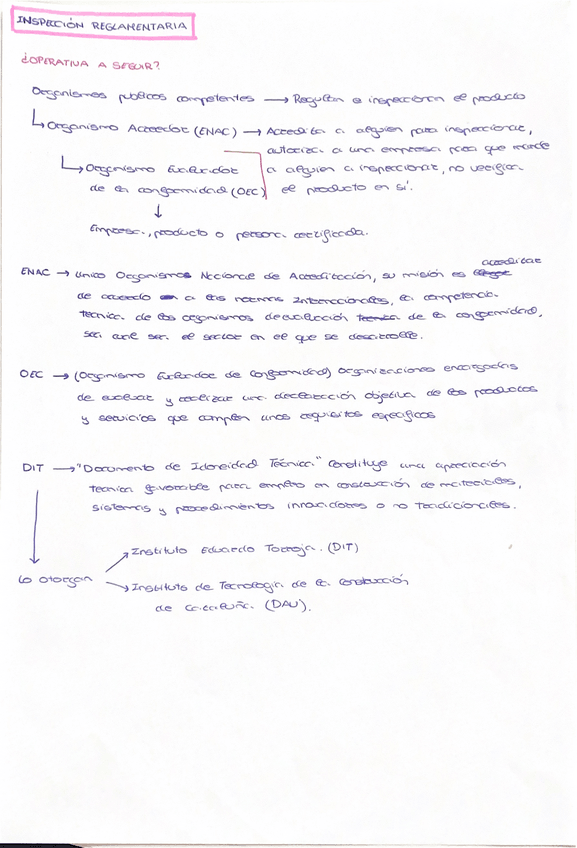 INSPECCIÓN REGLAMENTARIA
¿OPERATIVA A SEGUIR?
Organismos publicos competentes → Regulan e inspeccionan el producto
Organismo Acreedor (ENAC) → Acredita a alguien para inspeccionar,
autoriza a una empresa para que mande
Organismo Evaluador a alguien a inspeccionar, no verifican
de la conformidad (OEC) el producto en sí.
Empresa, producto o persona certificada.
acreditar
ENAC → Unico Organismo Nacional de Acreditación, su misión es
de acuerdo a las normas Internacionales, la competencia
tecnica de los organismos de evaluación de la conformidad,
sea cual sea el sector en el que se desarrolle.
OEC → (Organismo Evaluador de Conformidad) Organizaciones encargadas
de evaluar y realizar una declaración objetiva de los productos
y servicios que cumplen unos requisitos especificos
DIT → "Documento de Idoneidad Técnica" Constituye una apreciación
tecnica favorable para empleo en construcción de materiales,
sistemas y procedimientos innovadores o no tradicionales.
Instituto Eduardo Torroja. (DIT)
Lo otorgan
Instituto de Tecnologia de la construcción
de Cataluña. (DAU).